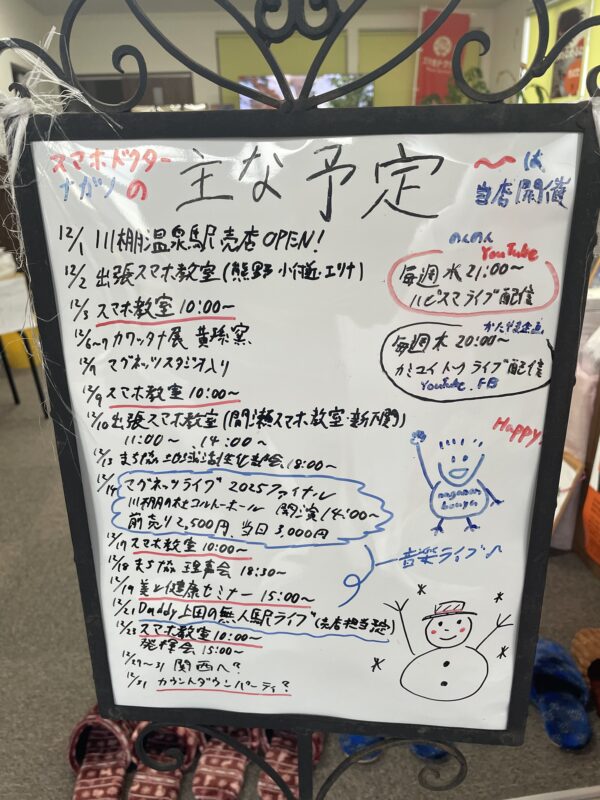 スマホドクター
ナガソの
主な予定
〜は
当店開催
12/1 川棚温泉駅売店OPEN!
12/2 出張スマホ教室(熊野 小槌 エリナ)
12/3 スマホ教室 10:00〜
12/6〜7 カワッタナ展 黄瑞窯
12/7 マグネッツスタジオ入り
12/9 スマホ教室 10:00〜
12/10 出張スマホ教室(間瀬スマホ教室・新下関)
11:00〜 14:00〜
12/13 まち協 地域活性化部会 18:00〜
12/14 マグネッツライブ 2025ファイナル
川棚の杜コルトーホール 開演14:00〜
前売り2,500円、当日3,000円
12/17 スマホ教室 10:00〜
12/18 まち協 理事会 18:30〜
12/19 美と健康セミナー 15:00〜
12/21 Daddy上田の無人駅ライブ(売店担当諗)
12/23 スマホ教室 10:00〜
発揮会 15:00〜
12/29〜31 関西へ?
12/31 カウントダウンパーティ?
のんのん
YouTube
毎週水21:00〜
ハピスマライブ配信
かたやま企画
毎週木20:00〜
カミユイトツライブ配信
YouTube、FB
Happy
naganon
bouya
音楽ライブ♪